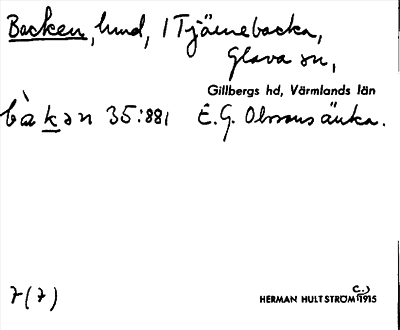 Backen, lund, / Tjärnebacka,
Glava sn,
Gillbergs hd, Värmlands län
bàkən 35:881 E.G. Olssons änka.
7(7)
HERMAN HULTSTRÖM C.) 1915